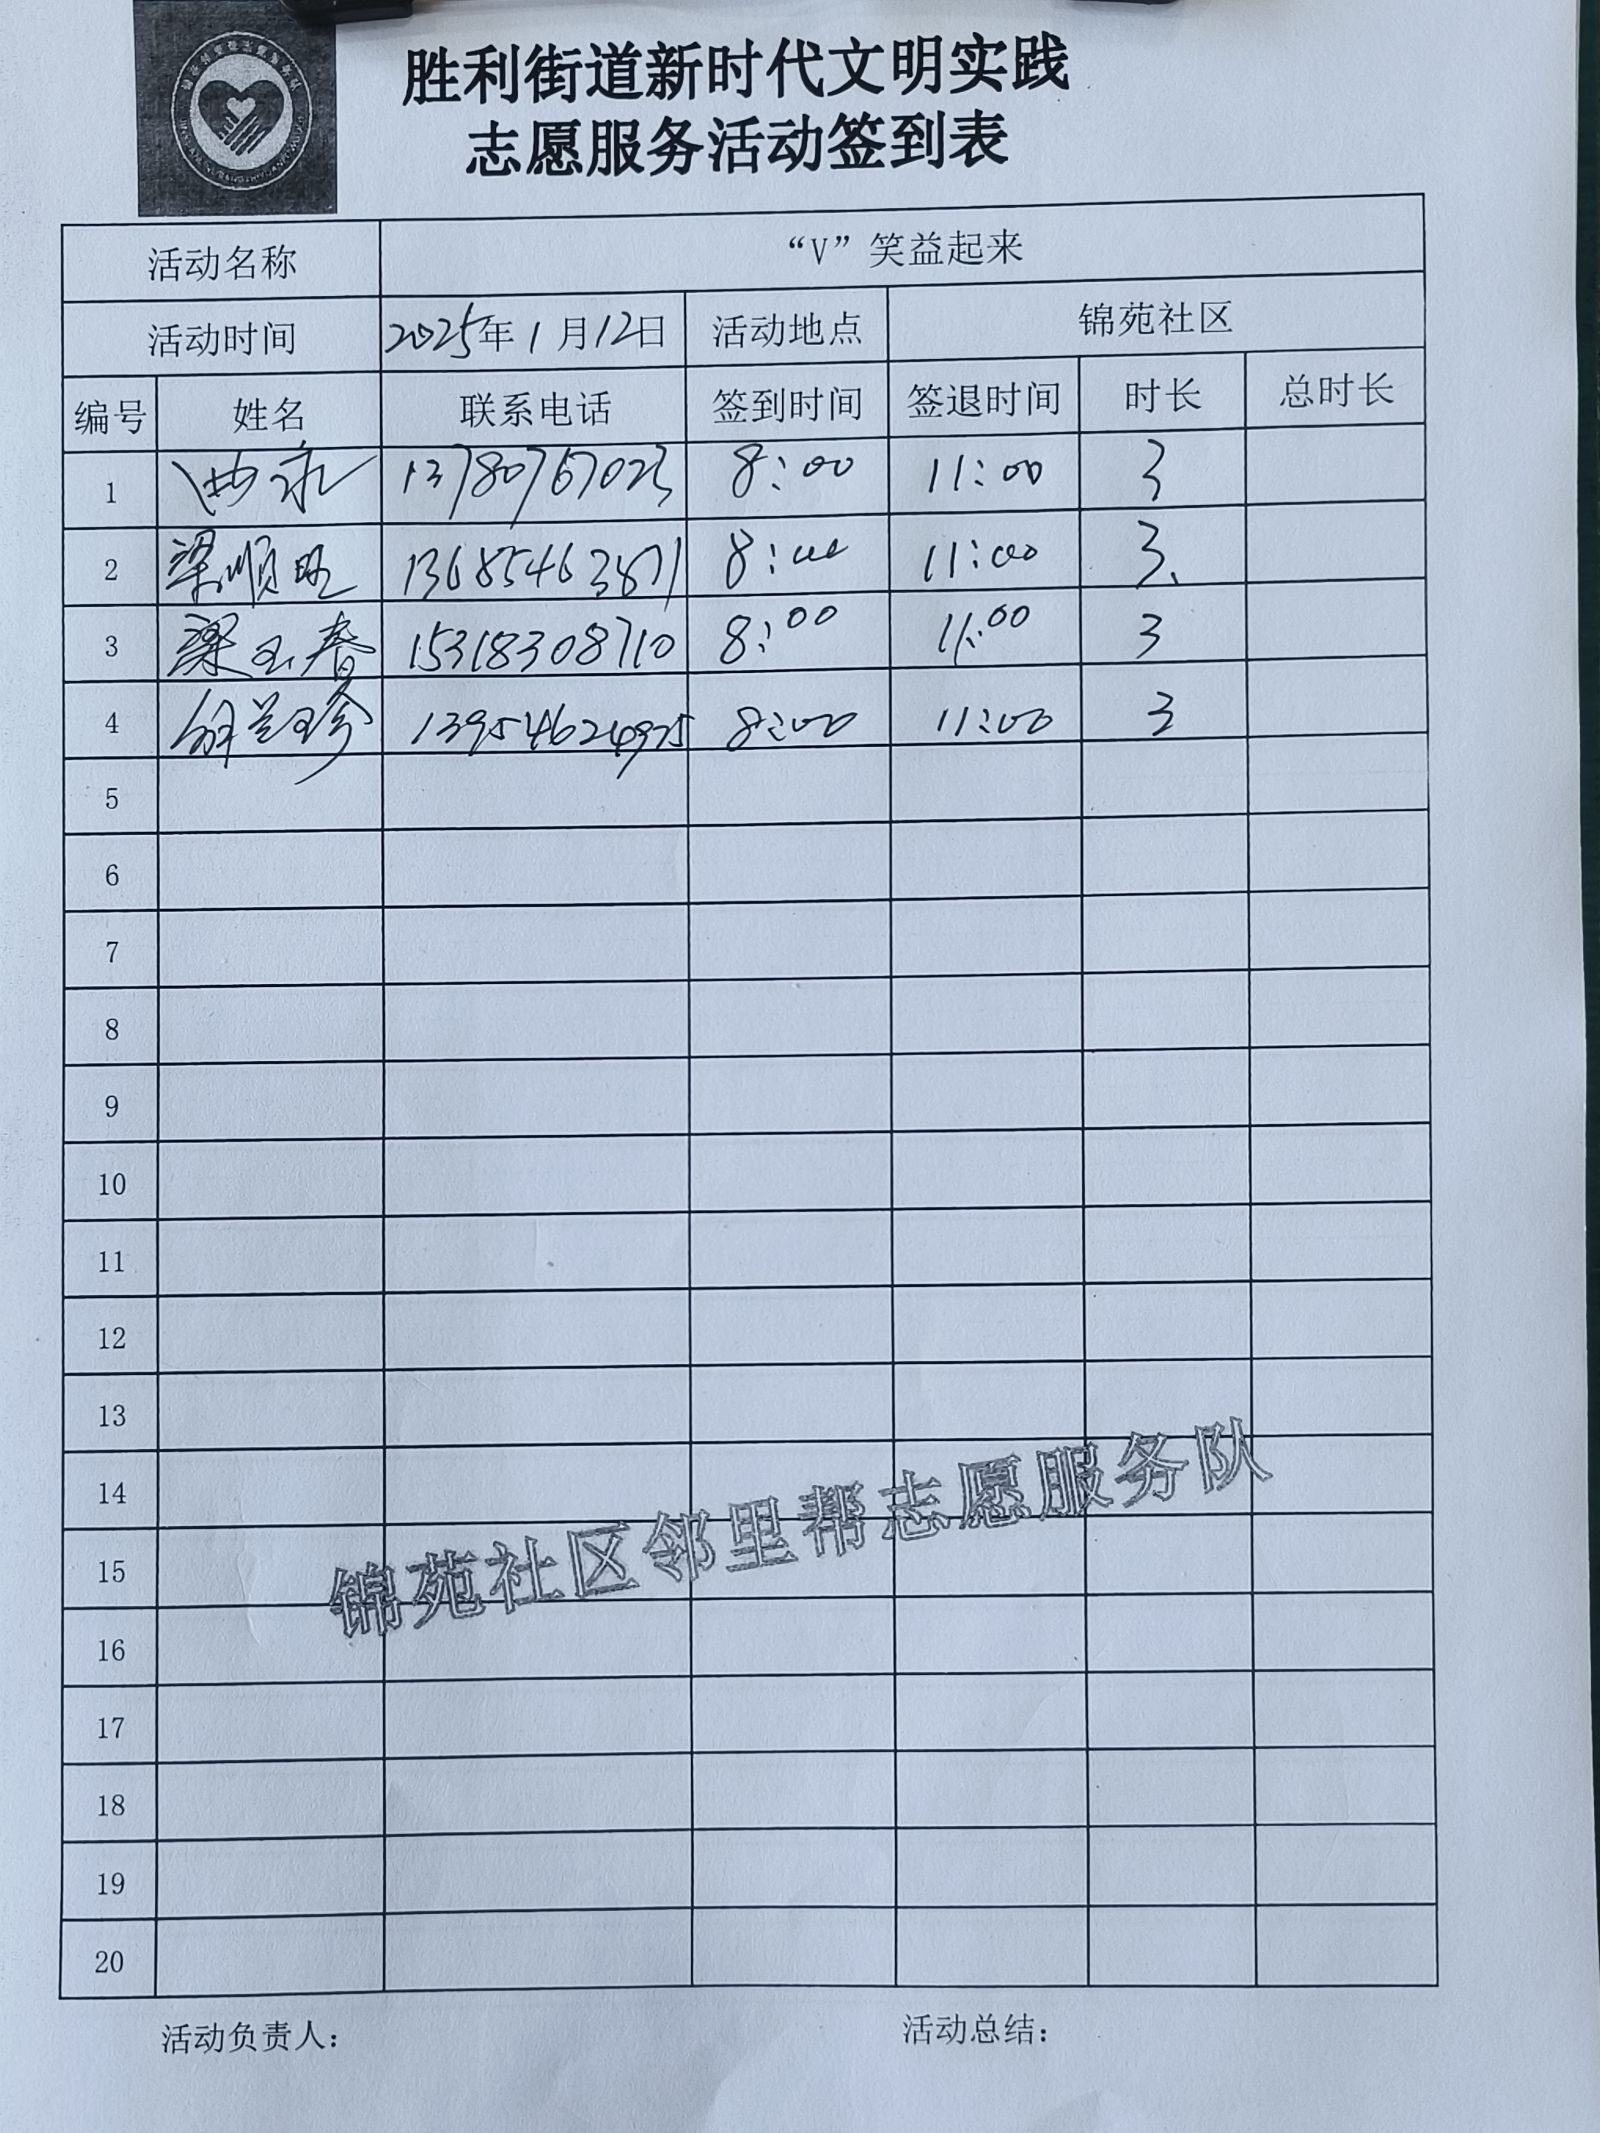 胜利街道新时代文明实践
志愿服务活动签到表
活动名称 “V”笑益起来
活动时间 2025年1月12日 活动地点 锦苑社区
编号 姓名 联系电话 签到时间 签退时间 时长 总时长
1 13780767023 8:00 11:00 3
2 梁顺 13685463871 8:00 11:00 3
3 梁玉春 15318308710 8:00 11:00 3
4 兰珍 13954624975 8:00 11:00 3
5
6
7
8
9
10
11
12
13
14
15
16
17
18
19
20
锦苑社区邻里帮志愿服务队
活动负责人: 活动总结: